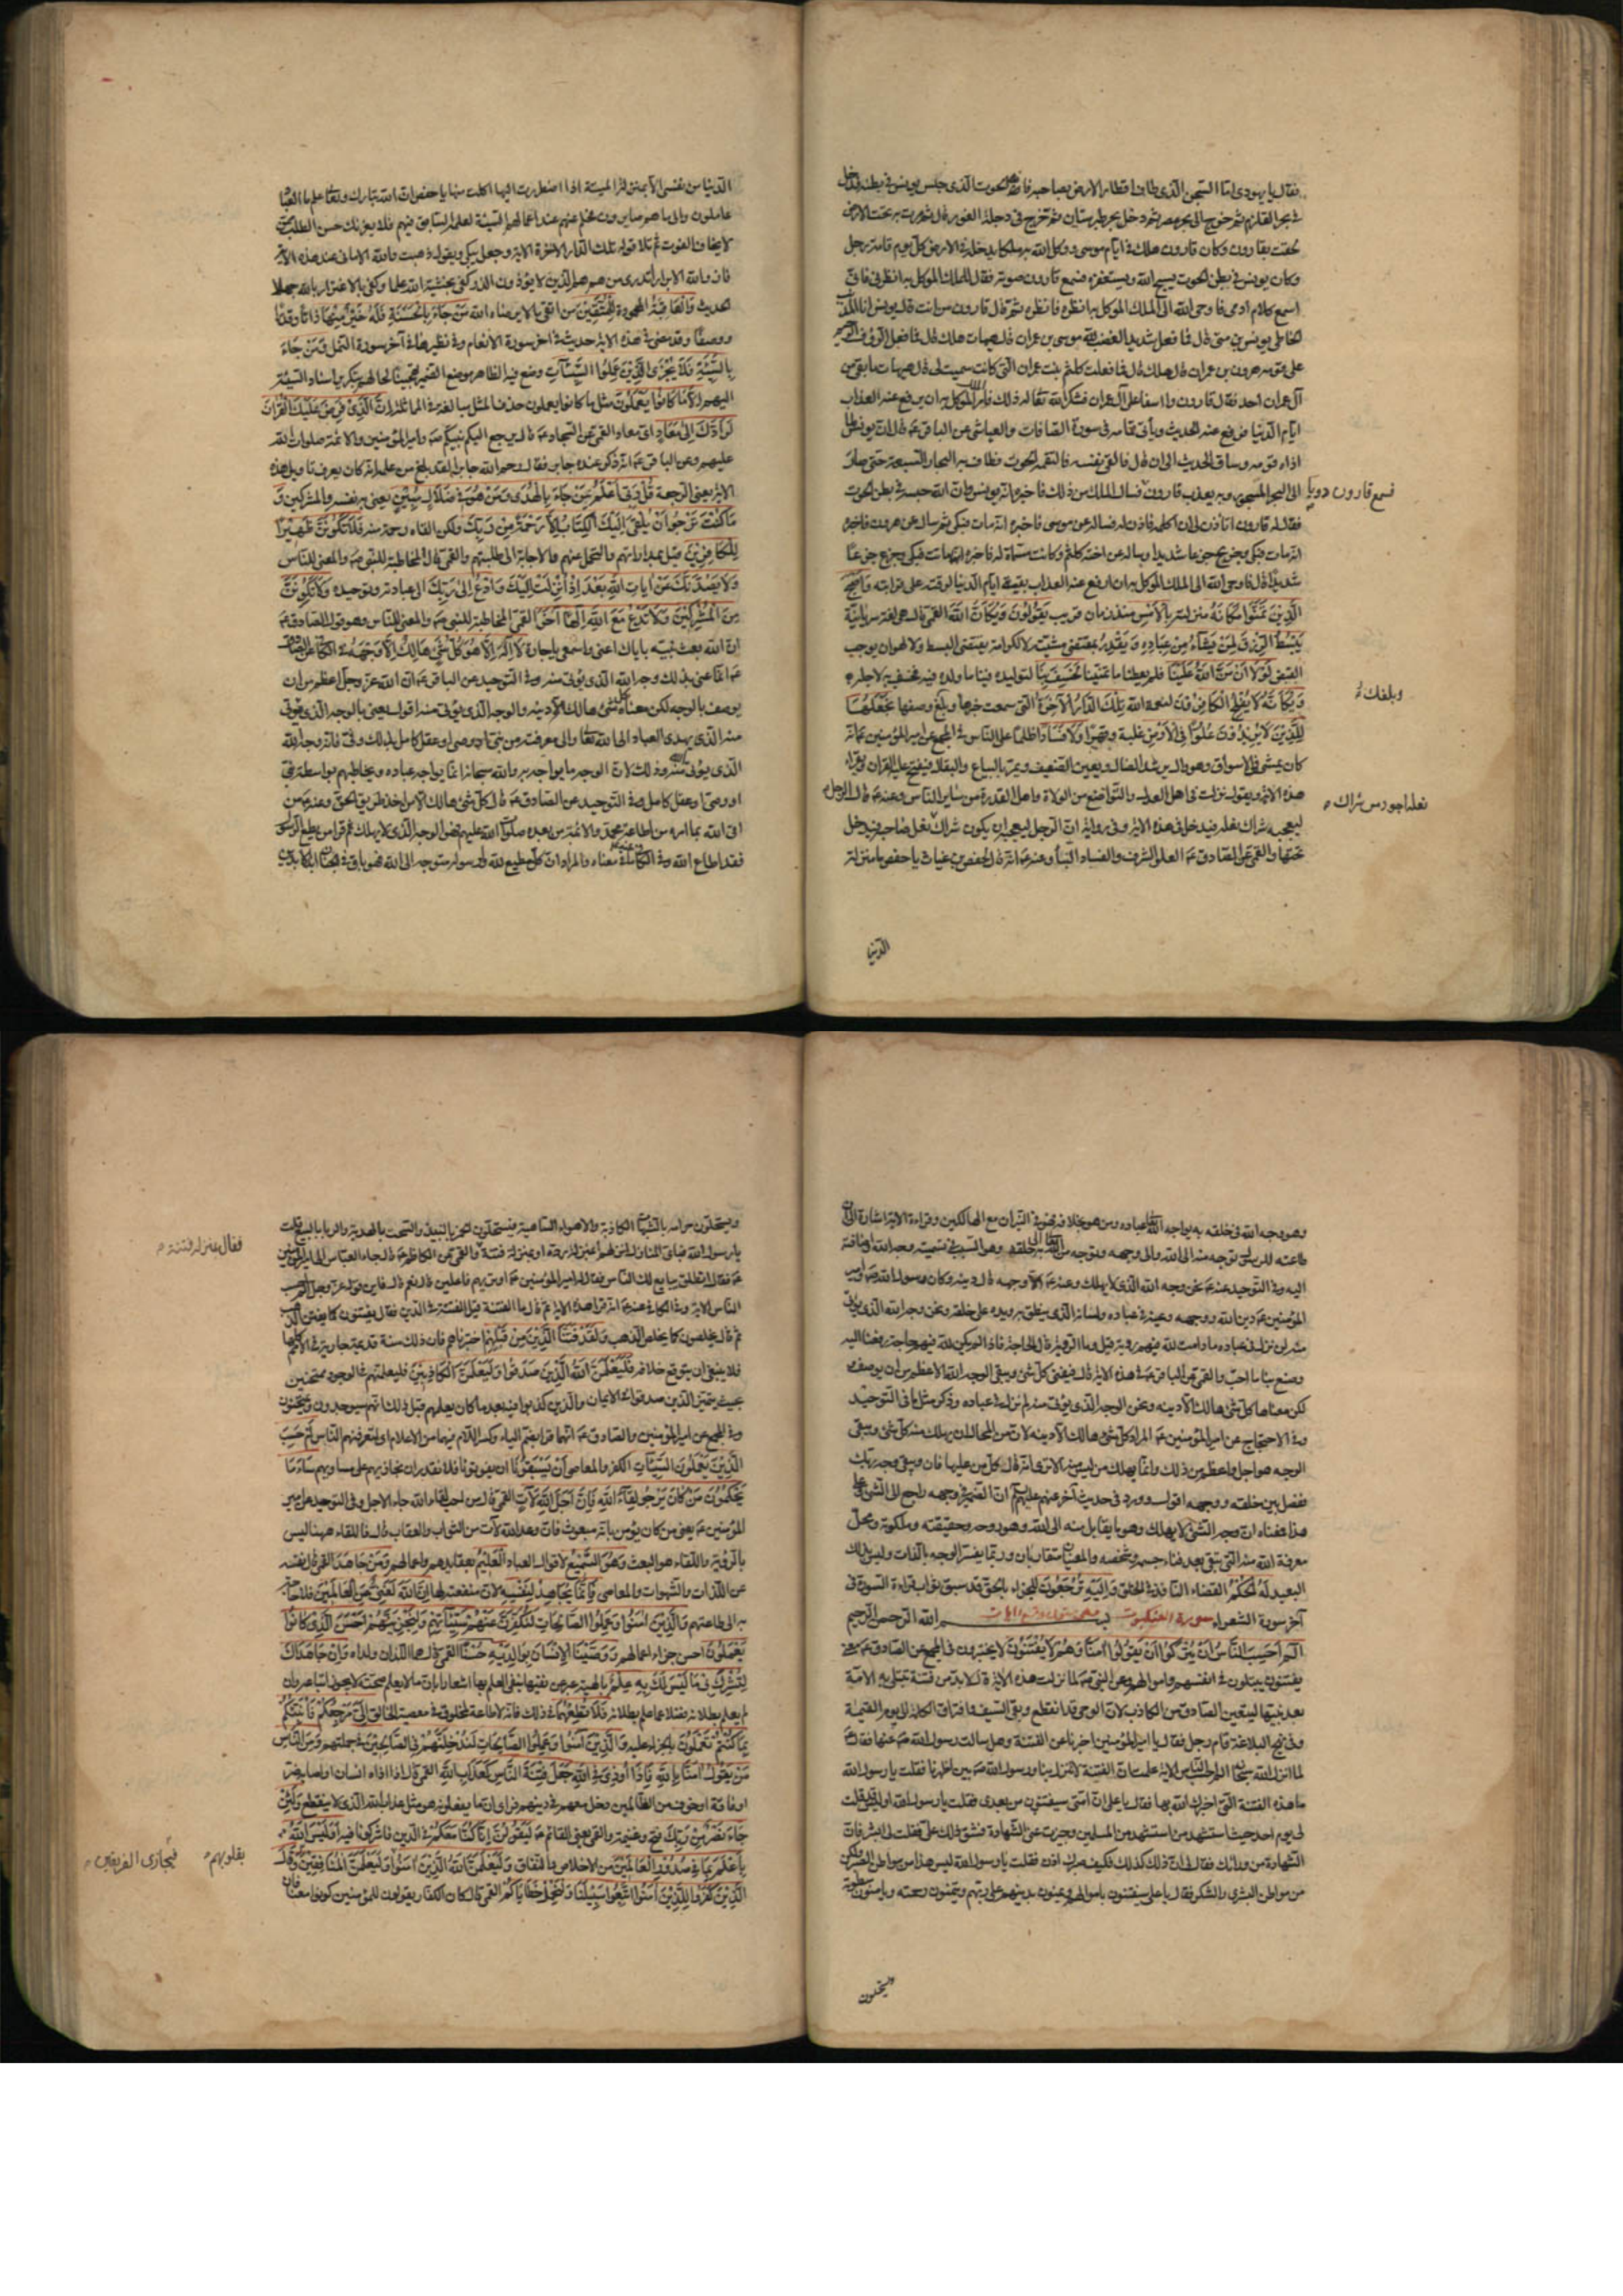 فقال يا يهودى امّا السّجن الّذى طاف اقطار الارض بصاحبه فانّه الحوت الّذى حبس يونس فى بطنه فدخل
فى بحر القلزم ثم خرج الى بحر مصر ثم دخل بحر طبرستان ثم خرج فى دجلة الغور قال ثم مرت به تحت الارض حتى
لحقت بقارون وكان قارون هلك فى ايّام موسى ووكل الله به ملكا يدخله فى الارض كل يوم قامة رجل
وكان يونس فى بطن الحوت يسبح الله ويستغفره فسمع قارون صوته فقال للملك الموكل به انظرنى فانّى
اسمع كلام ادمى فاوحى الله الى الملك الموكل به انظره فانظره ثم قال قارون من انت قال يونس انا المذنب
الخاطى يونس بن متى قال فما فعل شديد الغضب لله موسى بن عمران قال هيهات هلك قال فما فعل الرؤف الرحيم
على قومه هرون بن عمران قال هلك قال فما فعلت كلثم بنت عمران التى كانت سميت لى قال هيهات ما بقى من
آل عمران احد فقال قارون وا اسفا على آل عمران فشكر الله تعالى له ذلك فامر الله الموكل به ان يرفع عنه العذاب
ايّام الدّنيا فرفع عنه الحديث ويأتى تمامه فى سورة الصّافات والعياشى عن الباقر عم قال ان يونس لما
اذاه قومه وساق الحديث الى ان قال فالقى نفسه فالتقمه الحوت فطاف به البحار السّبعة حتى صار
الى البحر المسجور وبه يعذب قارون فسال الملك من ذلك فاخبره انّه يونس وان الله حبسه فى بطن الحوت
فسمع قارون دويا
فقال له قارون اتأذن لى ان اكلمه فاذن له فساله عن موسى فاخبره انّه مات فبكى ثم ساله عن هرون فاخبره
انّه مات فبكى وجزع جزعا شديدا وساله عن اخته كلثم وكانت مسمّاة له فاخبره انّها ماتت فبكى وجزع جزعا
شديدا قال فاوحى الله الى الملك الموكل به ان ارفع عنه العذاب بقيّة ايّام الدّنيا لرقته على قرابته وَاَصْبَحَ
الَّذِيْنَ تَمَنَّوْا مَكَانَهُ منزلته بِالْاَمْسِ منذ زمان قريب يَقُوْلُوْنَ وَيْكَاَنَّ اللّٰهَ القمى قال هى لغة سريانيّة
يَبْسُطُ الرِّزْقَ لِمَنْ يَشَاءُ مِنْ عِبَادِهِ وَيَقْدِرُ بمقتضى مشيّته لا لكرامة يقتضى البسط ولا لهوان يوجب
القبض لَوْلَا اَنْ مَنَّ اللّٰهُ عَلَيْنَا فلم يعطنا ما تمنّينا لَخَسَفَ بِنَا لتوليده فينا ما ولده فيه فخسف به لاجله
وَيْكَاَنَّهُ لَا يُفْلِحُ الْكَافِرُوْنَ لنعمة الله تِلْكَ الدَّارُ الْآخِرَةُ الّتى سمعت خبرها وبلغك وصفها نَجْعَلُهَا
وبلغك
لِلَّذِيْنَ لَا يُرِيْدُوْنَ عُلُوًّا فِى الْاَرْضِ غلبة وقهرا وَلَا فَسَادًا ظلما على النّاس فى المجمع عن امير المؤمنين عم انه
كان يمشى فى الاسواق وهو وال يرشد الضال ويعين الضعيف ويمر بالبياع والبقال فيفتح عليه القران ويقرأ
هذه الاية ويقول نزلت فى اهل العدل والتّواضع من الولاة واهل القدرة من ساير النّاس وعنه عم قال الرجل
ليعجبه شراك نعله فيدخل فى هذه الاية وفى رواية انّ الرّجل ليعجبه ان يكون شراك نعل صاحبه فيدخل
نعله اجود من شراك
تحتها والقمى عن الصّادق عم العلو الشرف والفساد البناء وعنه عم انّه قال لحفص بن غياث يا حفص ما منزلة
الدّنيا
الدّنيا من نفسى الّا بمنزلة الميتة اذا اضطررت اليها اكلت منها يا حفص ان الله تبارك وتعالى علم ما العباد
عاملون والى ما هم صايرون فحلم عنهم عند اعمالهم السّيئة لعلمه السّابق فيهم فلا يغرنك حسن الطلب ممن
لا يخاف الفوت ثم تلا قوله تلك الدّار الاخرة الاية وجعل يبكى ويقول ذهبت والله الامانى عند هذه الاية
فاز والله الابرار اتدرى من هم هم الّذين لا يؤذون الذر كفى بخشية الله علما وكفى بالاغترار بالله جهلا
الحديث وَالْعَاقِبَةُ المحمودة لِلْمُتَّقِيْنَ من اتقى ما لا يرضاه الله مَنْ جَاءَ بِالْحَسَنَةِ فَلَهُ خَيْرٌ مِنْهَا ذاتا وقدرا
ووصفا وقد مضى فى هذه الاية حديث فى اخر سورة الانعام وفى نظيرها فى آخر سورة النّمل وَمَنْ جَاءَ
بِالسَّيِّئَةِ فَلَا يُجْزَى الَّذِيْنَ عَمِلُوا السَّيِّئَاتِ وضع فيه الظاهر موضع الضّمير تهجينا لحالهم بتكرير اسناد السّيئة
اليهم اِلَّا مَا كَانُوْا يَعْمَلُوْنَ مثل ما كانوا يعملون حذف المثل مبالغة فى المماثلة اِنَّ الَّذِىْ فَرَضَ عَلَيْكَ الْقُرْاٰنَ
لَرَادُّكَ اِلٰى مَعَادٍ اى معاد القمى عن السّجاد عم قال يرجع اليكم نبيكم ص وامير المؤمنين والائمة صلوات الله
عليهم وعن الباقر عم انّه ذكر عنده جابر فقال رحم الله جابرا لقد بلغ من علمه انّه كان يعرف تاويل هذه
الاية يعنى الرجعة قُلْ رَبِّىْ اَعْلَمُ مَنْ جَاءَ بِالْهُدٰى وَمَنْ هُوَ فِىْ ضَلَالٍ مُبِيْنٍ يعنى به نفسه والمشركين وَ
مَا كُنْتَ تَرْجُوْا اَنْ يُلْقٰى اِلَيْكَ الْكِتَابُ اِلَّا رَحْمَةً مِنْ رَبِّكَ ولكن القاه رحمة منه فَلَا تَكُوْنَنَّ ظَهِيْرًا
لِلْكَافِرِيْنَ قيل بمداراتهم والتحمل عنهم والاجابة الى طلبتهم والقمى قال المخاطبة للنّبى ص والمعنى للنّاس
وَلَا يَصُدُّنَّكَ عَنْ اٰيَاتِ اللّٰهِ بَعْدَ اِذْ اُنْزِلَتْ اِلَيْكَ وَادْعُ اِلٰى رَبِّكَ الى عبادته وتوحيده وَلَا تَكُوْنَنَّ
مِنَ الْمُشْرِكِيْنَ وَلَا تَدْعُ مَعَ اللّٰهِ اِلٰهًا اٰخَرَ القمى المخاطبة للنبى ص والمعنى للناس وهو قول الصّادق عم
ان الله بعث نبيّه باياك اعنى واسمعى يا جارة لَا اِلٰهَ اِلَّا هُوَ كُلُّ شَىْءٍ هَالِكٌ اِلَّا وَجْهَهُ فى الكافى عن الصّادق
عم انّما عنى بذلك وجه الله الّذى يؤتى منه وفى التّوحيد عن الباقر عم ان الله عزّ وجلّ اعظم من ان
يوصف بالوجه لكن معناه كل شئ هالك الّا دينه والوجه الّذى يؤتى منه اقول يعنى بالوجه الّذى يؤتى
منه الّذى يهدى العباد الى الله تعالى والى معرفته من نبى او وصى او عقل كامل بذلك وفى فانّه وجه الله
الّذى يؤتى الله منه وذلك لانّ الوجه ما يواجه به والله سبحانه انّما يواجه عباده ويخاطبهم بواسطة نبى
او وصى او عقل كامل وفى التّوحيد عن الصّادق عم قال كل شئ هالك الّا من اخذ طريق الحق وعنه عم من
اتى الله بما امر به من طاعة محمّد والائمة من بعده صلوات الله عليهم فهو الوجه الّذى لا يهلك ثم قرا من يطع الرسول
فقد اطاع الله وفى الكافى عنه عم ما فى معناه والمراد ان كل مطيع لله ولرسوله متوجه الى الله فهو باق فى الجنان ابد الابدين
وهو وجه الله فى خلقه به يواجه الله عباده ومن هو بخلافه فهو فى النّيران مع الهالكين وقراءة الاية اشارة الى ان
طاعته للرسول توجه منه الى الله والى وجهه وتوجه من الله الى خلقه وهو السّبب فى تسميته وجه الله واضافته
اليه وفى التّوحيد عنه عم نحن وجه الله الّذى لا يهلك وعنه عم الّا وجهه قال دينه وكان رسول الله ص وامير
المؤمنين عم دين الله ووجهه وعينه فى عباده ولسانه الّذى ينطق به ويده على خلقه ونحن وجه الله الّذى يؤتى
منه لن نزال فى عباده ما دامت لله فيهم روية قيل وما الروية قال الحاجة فاذا لم يكن لله فيهم حاجة رفعنا اليه
وصنع بنا ما احب والقمى عن الباقر عم فى هذه الاية قال فيفنى كل شئ ويبقى الوجه الله اعظم من ان يوصف
لكن معناها كل شئ هالك الّا دينه ونحن الوجه الّذى يؤتى منه لم نزل فى عباده وذكر مثل ما فى التوحيد
وفى الاحتجاج عن امير المؤمنين عم المراد كل شئ هالك الّا دينه لان من المحال ان يهلك منه كل شئ ويبقى
الوجه هو اجل واعظم من ذلك وانّما يهلك من ليس منه الا ترى انه قال كل من عليها فان ويبقى وجه ربك
ففصل بين خلقه ووجهه اقول وورد فى حديث آخر عنهم عليهم السلام انّ الضّمير فى وجهه راجع الى الشئ وعلى
هذا فمعناه ان وجه الشّئ لا يهلك وهو ما يقابل منه الى الله وهو روحه وحقيقته وملكوته ومحل
معرفة الله منه الّتى تبقى بعد فناء جسمه وشخصه والمعنيان متقاربان وربّما يفسّر الوجه بالذات وليس بذلك
البعيد لَهُ الْحُكْمُ القضاء النّافذ فى الخلق وَاِلَيْهِ تُرْجَعُوْنَ للجزاء بالحق قد سبق ثواب قراءة السّورة فى
آخر سورة الشعراء سورة العنكبوت بسم الله الرّحمن الرّحيم
الٓمٓ اَحَسِبَ النَّاسُ اَنْ يُتْرَكُوْا اَنْ يَقُوْلُوْا اٰمَنَّا وَهُمْ لَا يُفْتَنُوْنَ لا يختبرون فى المجمع عن الصّادق عم معنى
يفتنون يبتلون فى انفسهم واموالهم وعن النّبى ص لما نزلت هذه الاية قال لا بد من فتنة تبتلى به الامّة
بعد نبيّها ليتعين الصّادق من الكاذب لانّ الوحى قد انقطع وبقى السّيف وافتراق الكلمة الى يوم القيمة
وفى نهج البلاغة قام رجل فقال يا امير المؤمنين اخبرنا عن الفتنة وهل سالت رسول الله ص عنها فقال عم
لما انزل الله سبحانه الم احسب النّاس الاية علمت ان الفتنة لا تنزل بنا ورسول الله ص بين اظهرنا فقلت يا رسول الله
ما هذه الفتنة الّتى اخبرك الله بها فقال يا على ان امّتى سيفتنون من بعدى فقلت يا رسول الله اوليس قد قلت
لى يوم احد حيث استشهد من استشهد من المسلمين وحيزت عنى الشّهادة فشق ذلك على فقلت لى ابشر فان
الشّهادة من ورائك فقال لى ان ذلك كذلك فكيف صبرك اذن فقلت يا رسول الله ليس هذا من مواطن الصبر ولكن
من مواطن البشرى والشكر فقال يا على سيفتنون باموالهم ويمنون بدينهم على ربهم ويتمنون رحمته ويامنون سطوته
ويستحلون
ويستحلّون حرامه بالشّبهات الكاذبة والاهواء السّاهية فيستحلّون الخمر بالنّبيذ والسّحت بالهدية والربا بالبيع قلت
يا رسول الله فباى المنازل انزلهم اعند ذلك بمنزلة ردة او بمنزلة فتنة والقمى عن الكاظم عم قال جاء العباس الى امير المؤمنين
فقال بمنزلة فتنة
عم فقال انطلق يبايع لك النّاس فقال له امير المؤمنين عم اوتريهم فاعلين قال نعم قال فاين قول الله عز وجل الم احسب
النّاس الاية وفى الكافى عنه عم انّه قرا هذه الاية ثم قال ما الفتنة قيل الفتنة فى الدّين فقال يفتنون كما يفتن الذّهب
ثم قال يخلصون كما يخلص الذّهب وَلَقَدْ فَتَنَّا الَّذِيْنَ مِنْ قَبْلِهِمْ اختبرناهم فان ذلك سنة قديمة جارية فى الامم كلها
فلا ينبغى ان يتوقع خلافه فَلَيَعْلَمَنَّ اللّٰهُ الَّذِيْنَ صَدَقُوْا وَلَيَعْلَمَنَّ الْكَاذِبِيْنَ فليعلمنّهم فى الوجود ممتحنين
بحيث يتميّز الّذين صدقوا فى الايمان والّذين كذبوا فيه بعد ما كان يعلمهم قبل ذلك انّهم سيوجدون ويمتحنون
وفى المجمع عن امير المؤمنين والصّادق عم انّهما قرءا بضم الياء وكسر اللّام فيهما من الاعلام اى ليعرفنهم النّاس اَمْ حَسِبَ
الَّذِيْنَ يَعْمَلُوْنَ السَّيِّئَاتِ الكفر والمعاصى اَنْ يَسْبِقُوْنَا ان يفوتونا فلا نقدر ان نجازيهم على مساويهم سَاءَ مَا
يَحْكُمُوْنَ مَنْ كَانَ يَرْجُوْ لِقَاءَ اللّٰهِ فَاِنَّ اَجَلَ اللّٰهِ لَاٰتٍ القمى قال من احب لقاء الله جاءه الاجل وفى التّوحيد عن امير
المؤمنين عم يعنى من كان يؤمن بانّه مبعوث فان وعد الله لآت من الثواب والعقاب قال فاللّقاء ههنا ليس
بالرّؤية واللّقاء هو البعث وَهُوَ السَّمِيْعُ لاقوال العباد الْعَلِيْمُ بعقايدهم واعمالهم وَمَنْ جَاهَدَ القمى قال نفسه
عن اللّذات والشّهوات والمعاصى فَاِنَّمَا يُجَاهِدُ لِنَفْسِهِ لان منفعته لها اِنَّ اللّٰهَ لَغَنِىٌّ عَنِ الْعَالَمِيْنَ فلا حاجة
به الى طاعتهم وَالَّذِيْنَ اٰمَنُوْا وَعَمِلُوا الصَّالِحَاتِ لَنُكَفِّرَنَّ عَنْهُمْ سَيِّئَاتِهِمْ وَلَنَجْزِيَنَّهُمْ اَحْسَنَ الَّذِىْ كَانُوْا
يَعْمَلُوْنَ احسن جزاء اعمالهم وَوَصَّيْنَا الْاِنْسَانَ بِوَالِدَيْهِ حُسْنًا القمى قال هما اللّذان ولداه وَاِنْ جَاهَدَاكَ
لِتُشْرِكَ بِىْ مَا لَيْسَ لَكَ بِهِ عِلْمٌ بالهيّته عبر عن نفيها بنفى العلم بها اشعارا بان ما لا يعلم صحته لا يجوز اتباعه وان
لم يعلم بطلانه فضلا عما علم بطلانه فَلَا تُطِعْهُمَا فى ذلك فانّه لا طاعة لمخلوق فى معصية الخالق اِلَىَّ مَرْجِعُكُمْ فَاُنَبِّئُكُمْ
بِمَا كُنْتُمْ تَعْمَلُوْنَ بالجزاء عليه وَالَّذِيْنَ اٰمَنُوْا وَعَمِلُوا الصَّالِحَاتِ لَنُدْخِلَنَّهُمْ فِى الصَّالِحِيْنَ فى جملتهم وَمِنَ النَّاسِ
مَنْ يَقُوْلُ اٰمَنَّا بِاللّٰهِ فَاِذَا اُوْذِىَ فِى اللّٰهِ جَعَلَ فِتْنَةَ النَّاسِ كَعَذَابِ اللّٰهِ القمى قال اذا اذاه انسان او اصابه ضر
او فاقة او خوف من الظّالمين دخل معهم فى دينهم فراى ان ما يفعلونه هو مثل عذاب الله الّذى لا ينقطع وَلَئِنْ
جَاءَ نَصْرٌ مِنْ رَبِّكَ فتح وغنيمة والقمى يعنى القائم عم لَيَقُوْلُنَّ اِنَّا كُنَّا مَعَكُمْ فى الدّين فاشركونا فيه اَوَلَيْسَ اللّٰهُ
بِاَعْلَمَ بِمَا فِىْ صُدُوْرِ الْعَالَمِيْنَ من الاخلاص والنّفاق وَلَيَعْلَمَنَّ اللّٰهُ الَّذِيْنَ اٰمَنُوْا وَلَيَعْلَمَنَّ الْمُنَافِقِيْنَ وَقَالَ
بقلوبهم
فيجازى الفريقين
الَّذِيْنَ كَفَرُوْا لِلَّذِيْنَ اٰمَنُوا اتَّبِعُوْا سَبِيْلَنَا وَلْنَحْمِلْ خَطَايَاكُمْ القمى قال كان الكفار يقولون للمؤمنين كونوا معنا فان